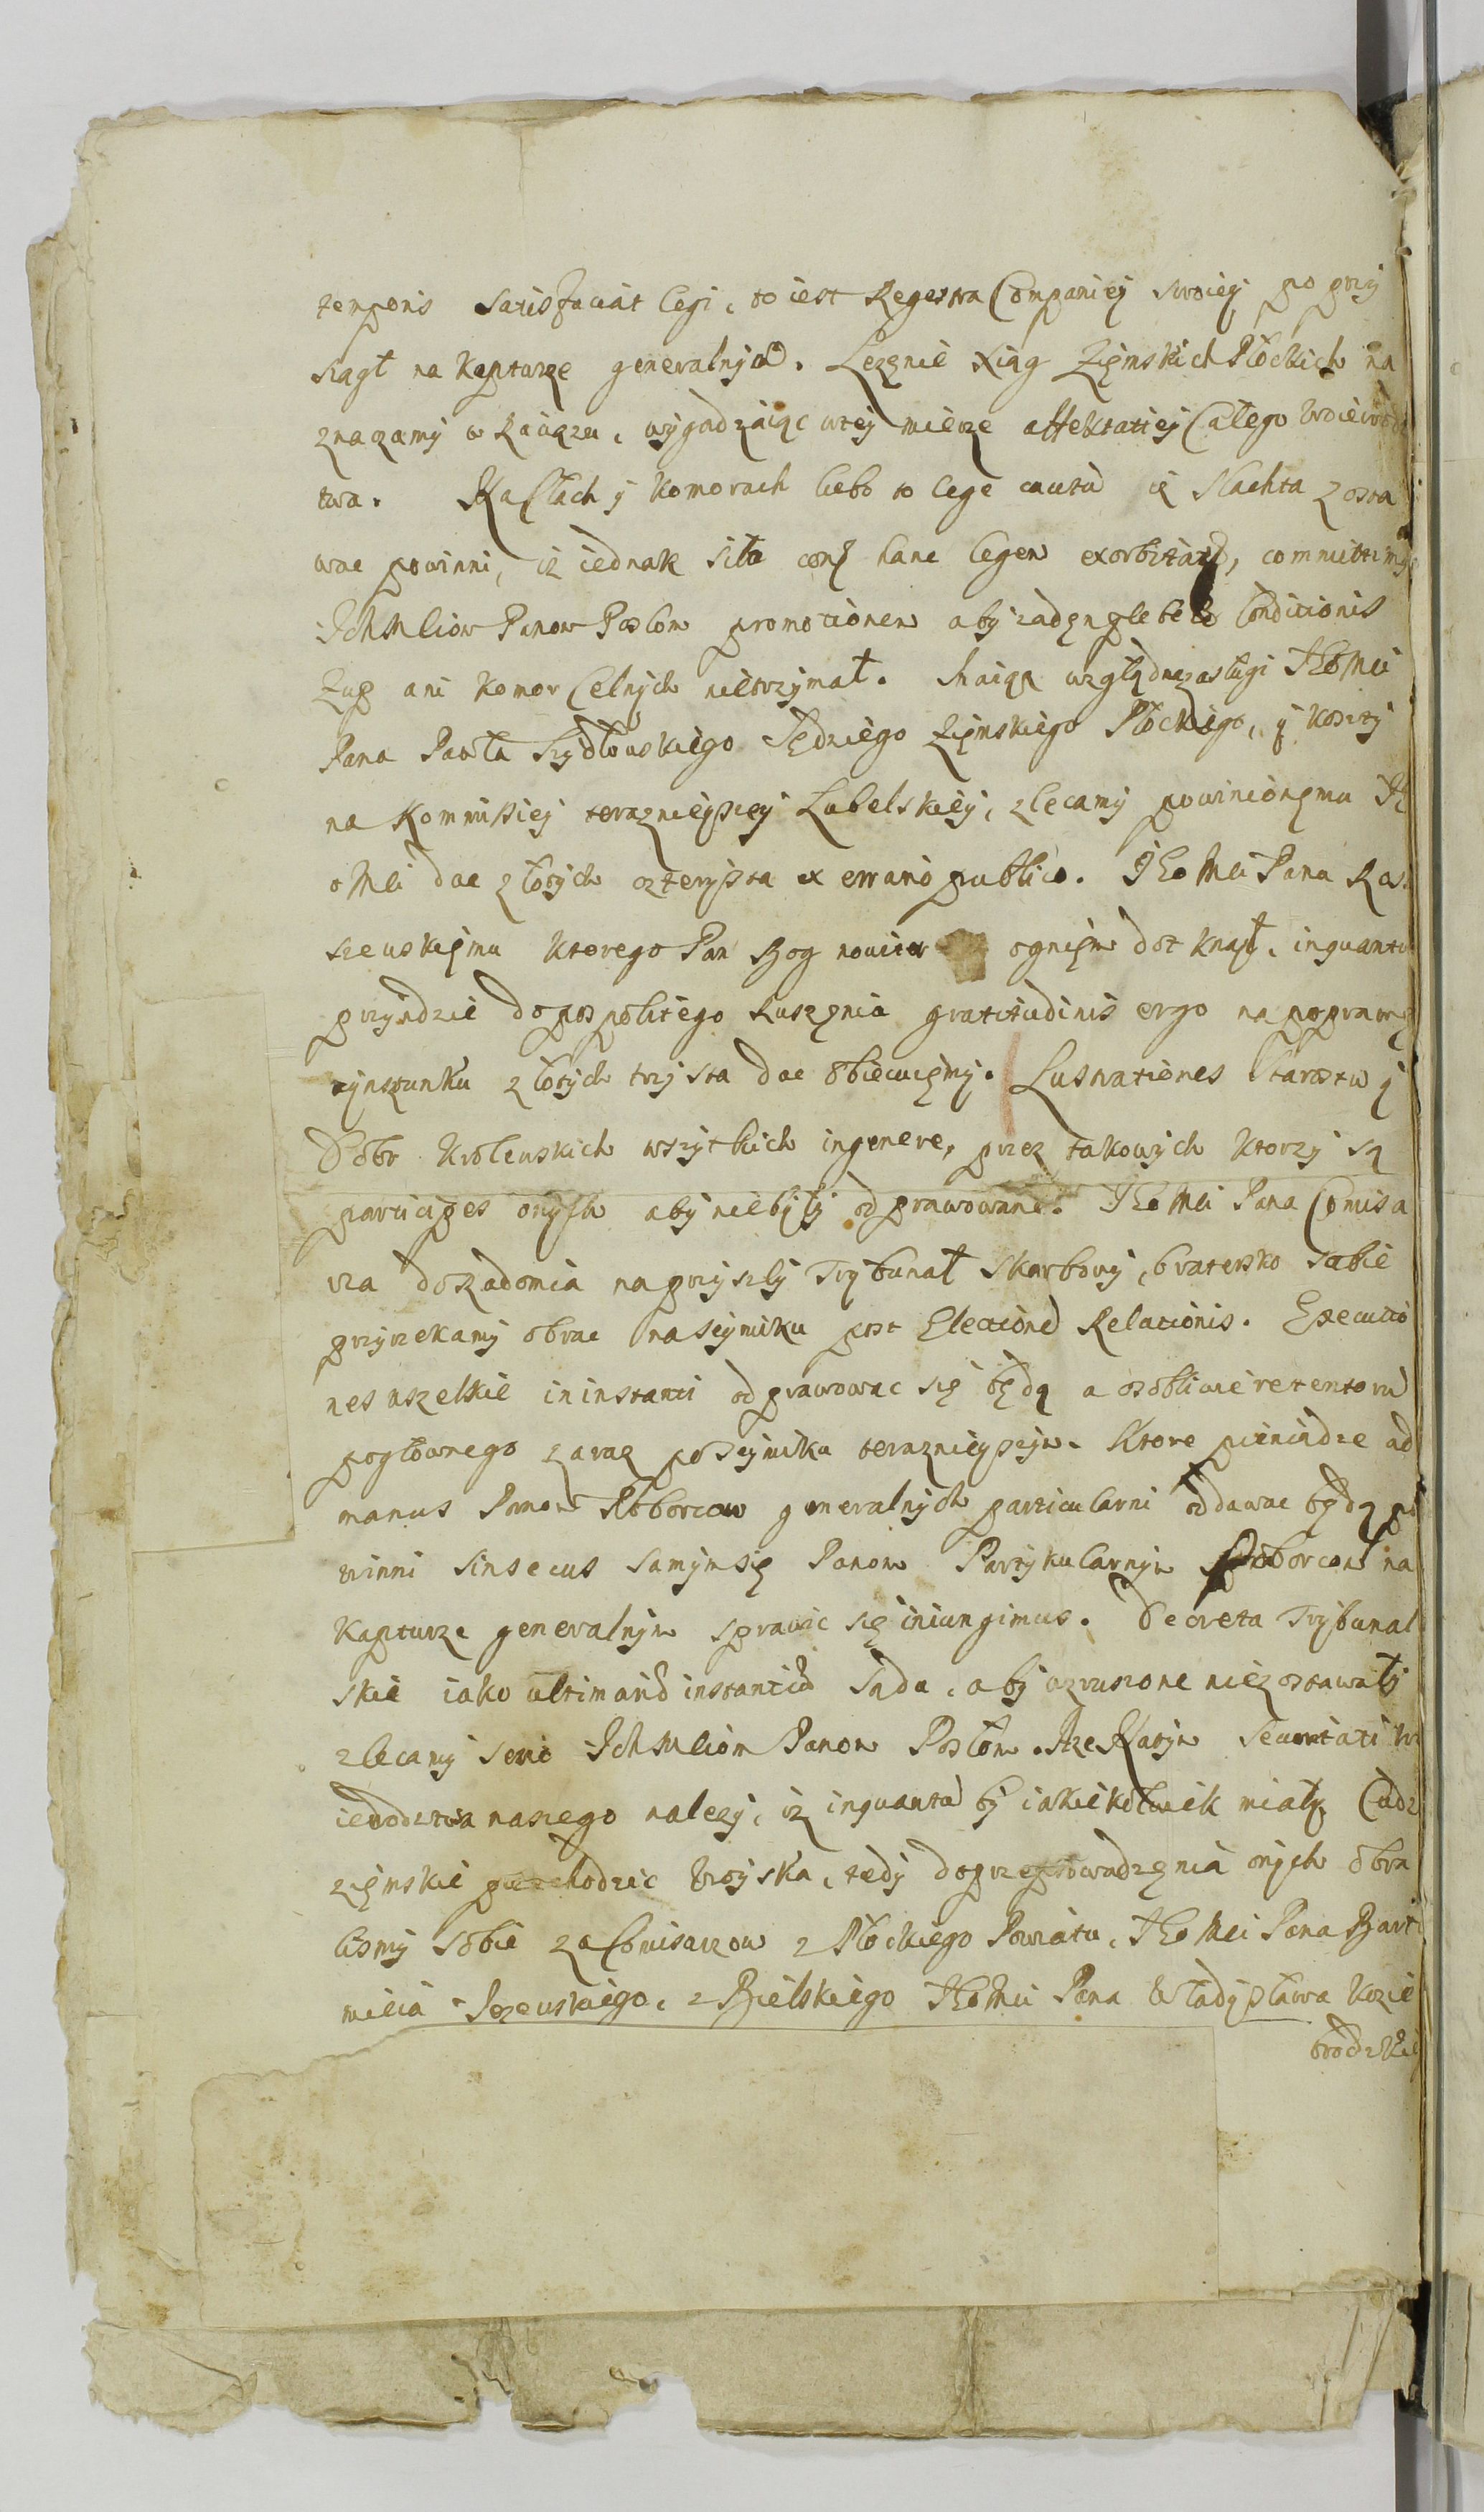 temporis satisfaciat legi, to iest Regestra Companiey swoiey po przy
siągł na Kapturze generalnym. Lezęnie Xiąg Zięmskich Płockich na
znaczamy w Raciążu, wygadzaiąc wtey mierze affektatiey Całego Woiewodz
twa. Na Cłach y Komorach liebo to lege cautum iz Slachta zosta
wac powinni, iz iednak siła contra hanc legem exorbitant, committimus
Ich Mściow Panow Posłow promotionem aby zadęn plebeae Conditionis
Zup ani Komor Celnych nietrzymał. Maiąc wzgląd na zasługi Jego Mści
Pana Pawła Szydłowskiego Sędziego Zięmskiego Płockiego, y koszty
na Kommissiey teraznieyszey Lubelskiey, zlecamy powinionęmu Je
o Mści dac złotych czterysta ex errario publico. Jego Mści Pana Ros
szewskięmu ktorego Pan Bog noviter ognięm dotknął, inquantum
przyidzie do pospolitego Ruszęnia gratitudinis ergo na poprawę
rynsztunku złotych trzysta dac obiecuięmy. Lustrationes Starostw y
Dobr Krolewskich wszytkich ingenere, przez takowych ktorzy są
participes onych aby niebyły odprawowane. Jego Mści Pana Comisa
rza do Radomia na przyszły Trybunał Skarbowy, bratersko sobie
przyrzekamy obrac na seymiku post Electionem Relationis. Executio
nes wszelkie ininstanti odprawowac się będą a osobliwie retentorum
pogłownego zaraz po seymiku teraznieyszym. Ktore pieniądze ad
manus Panow Poborcow generalnych particularni oddawac będą po
winni sinsecus samym się Panom Partykularnym Poborcom na
Kapturze generalnym sprawic się iniungimus. Decreta Trybunal
skie iako ultimarum instantiarum Sądu, aby wzruszone niezostawały
zlecamy serio Ich Mściom Panom Posłom. Ize Natym Securitati Wo
iewodztwa naszego nalezy, iz inquantum by iakiekolwiek miały Cudz
zięmskie przechodzic Woyska, tedy do przeprowadzęnia onych obra
lismy sobie za Comisarzow z Płockiego Powiatu, Jego Mści Pana Bart
mieia Sczewskiego, z Bielskiego Jego Mści Pana Władysława Kozie
brodzkie